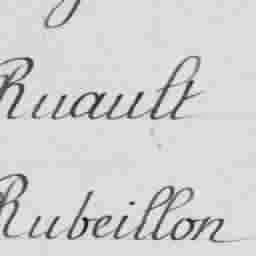 Ruault
Rubeillon